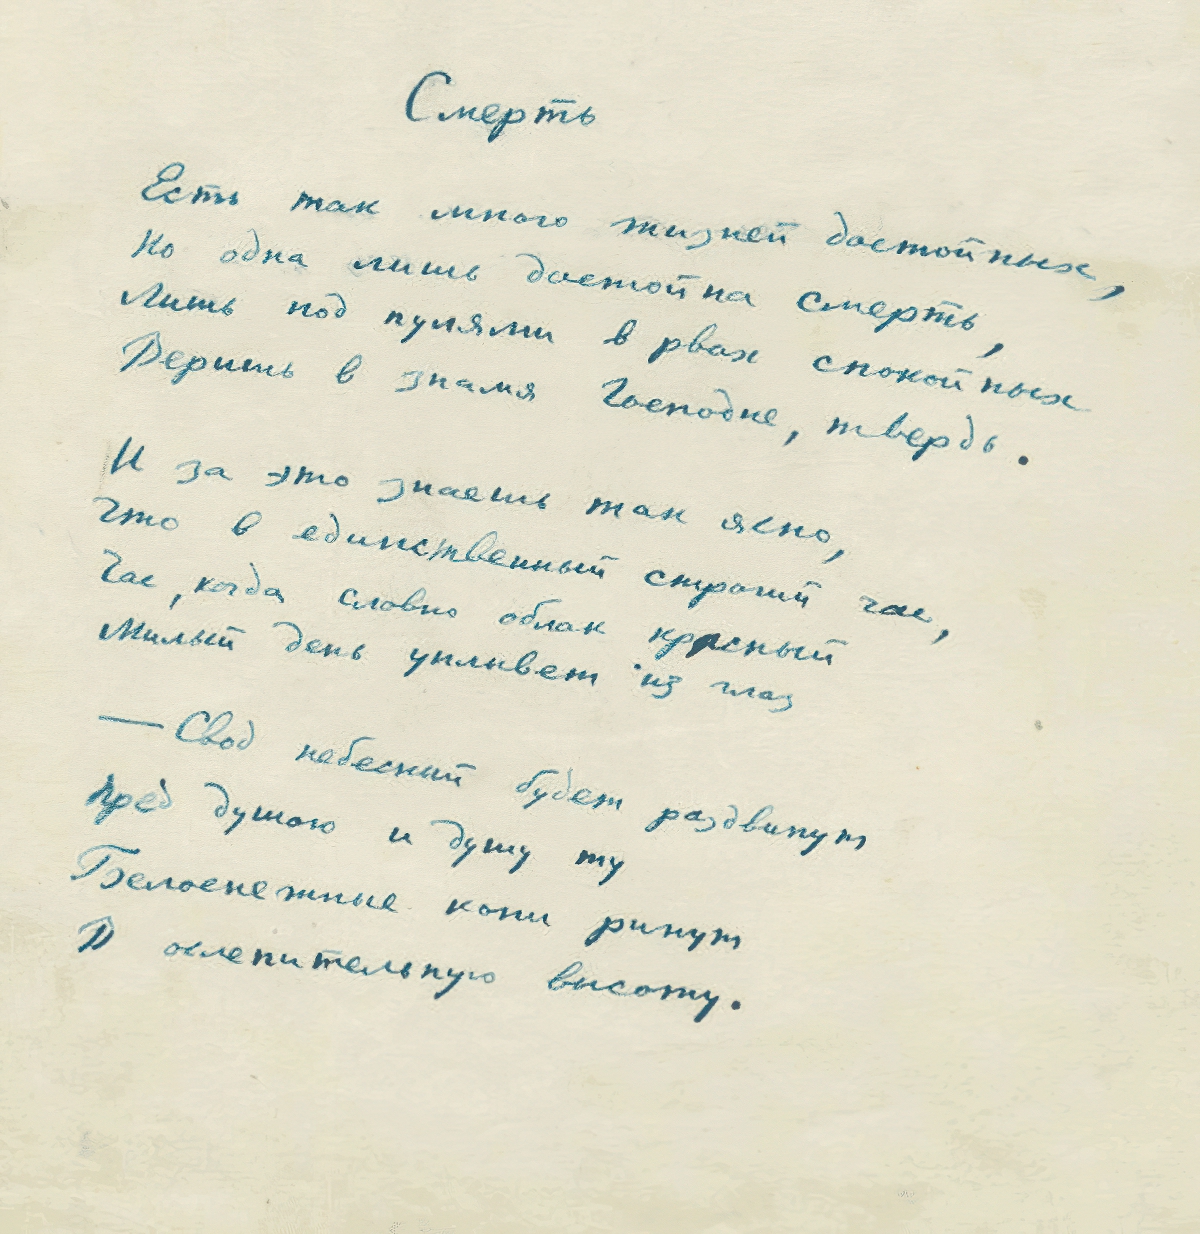 Смерть
Есть так много жизней достойных,
Но одна лишь достойна смерть,
Лишь под пулями в рвах спокойных
Веришь в знамя Господне, твердь.
И за это знаешь так ясно,
Что в единственный строгий час,
Час, когда словно облак красный
Милый день уплывет из глаз
— Свод небесный будет раздвинут
Пред душою и душу ту
Белоснежные кони ринут
В ослепительную высоту.